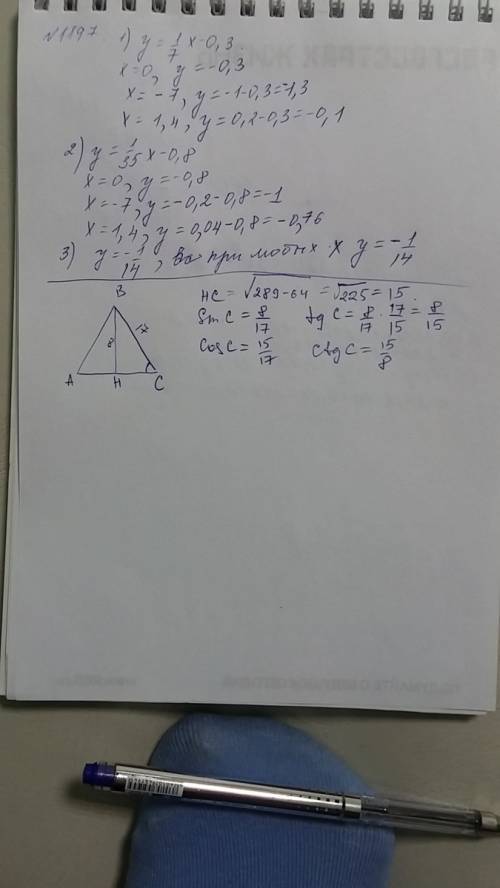 N1197 1) y = 1/7 x - 0,3
x=0, y = -0,3
x = -7, y = -1-0,3=-1,3
x = 1,4, y = 0,2-0,3=-0,1
2) y = 1/35 x - 0,8
x=0, y=-0,8
x=-7, y=-0,2-0,8=-1
x=1,4, y=0,04-0,8=-0,76
3) y=-1/14, при любых x y=-1/14
B
8 17
A H C
HC = √289-64 = √225 = 15.
Sin C = 8/17 tg C = 8/17 · 17/15 = 8/15
Cos C = 15/17 ctg C = 15/8